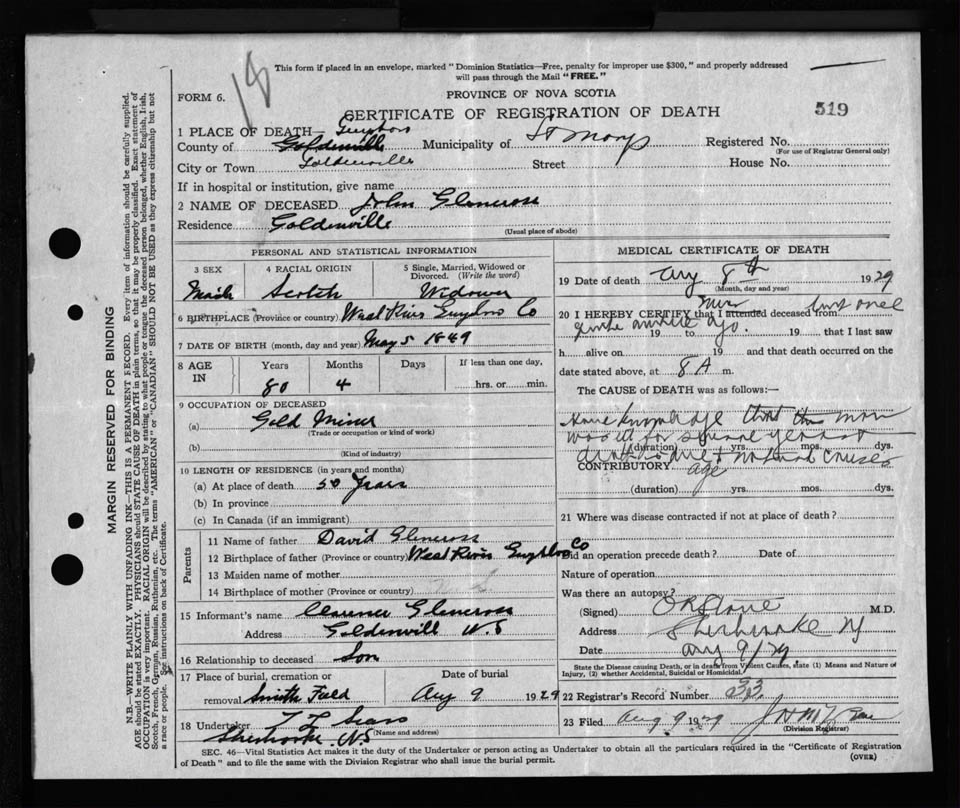 18
This form if placed in an envelope, marked "Dominion Statistics—Free, penalty for improper use $300," and properly addressed
will pass through the Mail "FREE."
FORM 6.
PROVINCE OF NOVA SCOTIA
CERTIFICATE OF REGISTRATION OF DEATH
519
1 PLACE OF DEATH—Guysboro
County of Goldenville Municipality of St Marys Registered No.
(For use of Registrar General only)
City or Town Goldenville Street House No.
If in hospital or institution, give name
2 NAME OF DECEASED John Glencross
Residence Goldenville
(Usual place of abode)
PERSONAL AND STATISTICAL INFORMATION
3 SEX 4 RACIAL ORIGIN 5 Single, Married, Widowed or Divorced. (Write the word)
Male Scotch Widower
6 BIRTHPLACE (Province or country) West River Guysboro Co
7 DATE OF BIRTH (month, day and year) May 5 1849
8 AGE IN Years Months Days If less than one day,
80 4 hrs. or min.
9 OCCUPATION OF DECEASED
(a) Gold Miner
(Trade or occupation or kind of work)
(b)
(Kind of industry)
10 LENGTH OF RESIDENCE (in years and months)
(a) At place of death 50 years
(b) In province
(c) In Canada (if an immigrant)
Parents
11 Name of father David Glencross
12 Birthplace of father (Province or country) West River Guysboro Co
13 Maiden name of mother
14 Birthplace of mother (Province or country) N S
15 Informant's name Clarence Glencross
Address Goldenville N.S
16 Relationship to deceased Son
17 Place of burial, cremation or removal Smith Field Date of burial Aug 9 1929
18 Undertaker Sears
Sherbrooke N.S (Name and address)
MEDICAL CERTIFICATE OF DEATH
19 Date of death Aug 8th 1929
(Month, day and year)
20 I HEREBY CERTIFY that I attended deceased from
quite awhile ago. 19 to 19 that I last saw
h alive on 19 and that death occurred on the
date stated above, at 8 A m.
The CAUSE of DEATH was as follows:—
Have knowledge that the man
was ill for several years
(duration) yrs. mos. dys.
death due to natural causes
CONTRIBUTORY age
(duration) yrs. mos. dys.
21 Where was disease contracted if not at place of death?
Did an operation precede death? Date of
Nature of operation
Was there an autopsy?
(Signed) M.D.
Address Sherbrooke NS
Date Aug 9/29
State the Disease causing Death, or in death from Violent Causes, state (1) Means and Nature of Injury, (2) whether Accidental, Suicidal or Homicidal.
22 Registrar's Record Number 33
23 Filed Aug 9 1929
(Division Registrar)
SEC. 46—Vital Statistics Act makes it the duty of the Undertaker or person acting as Undertaker to obtain all the particulars required in the "Certificate of Registration
of Death" and to file the same with the Division Registrar who shall issue the burial permit.
(OVER)
MARGIN RESERVED FOR BINDING
N.B.—WRITE PLAINLY WITH UNFADING INK—THIS IS A PERMANENT RECORD. Every item of information should be carefully supplied.
AGE should be stated EXACTLY. PHYSICIANS should STATE CAUSE OF DEATH in plain terms, so that it may be properly classified. Exact statement of
OCCUPATION is very important. RACIAL ORIGIN will be described by stating to what people or tongue the deceased person belonged, whether English, Irish,
Scotch, French, German, Russian, Ruthenian, etc. The terms "AMERICAN" or "CANADIAN" SHOULD NOT BE USED as they express citizenship but not
a race or people. See instructions on back of Certificate.